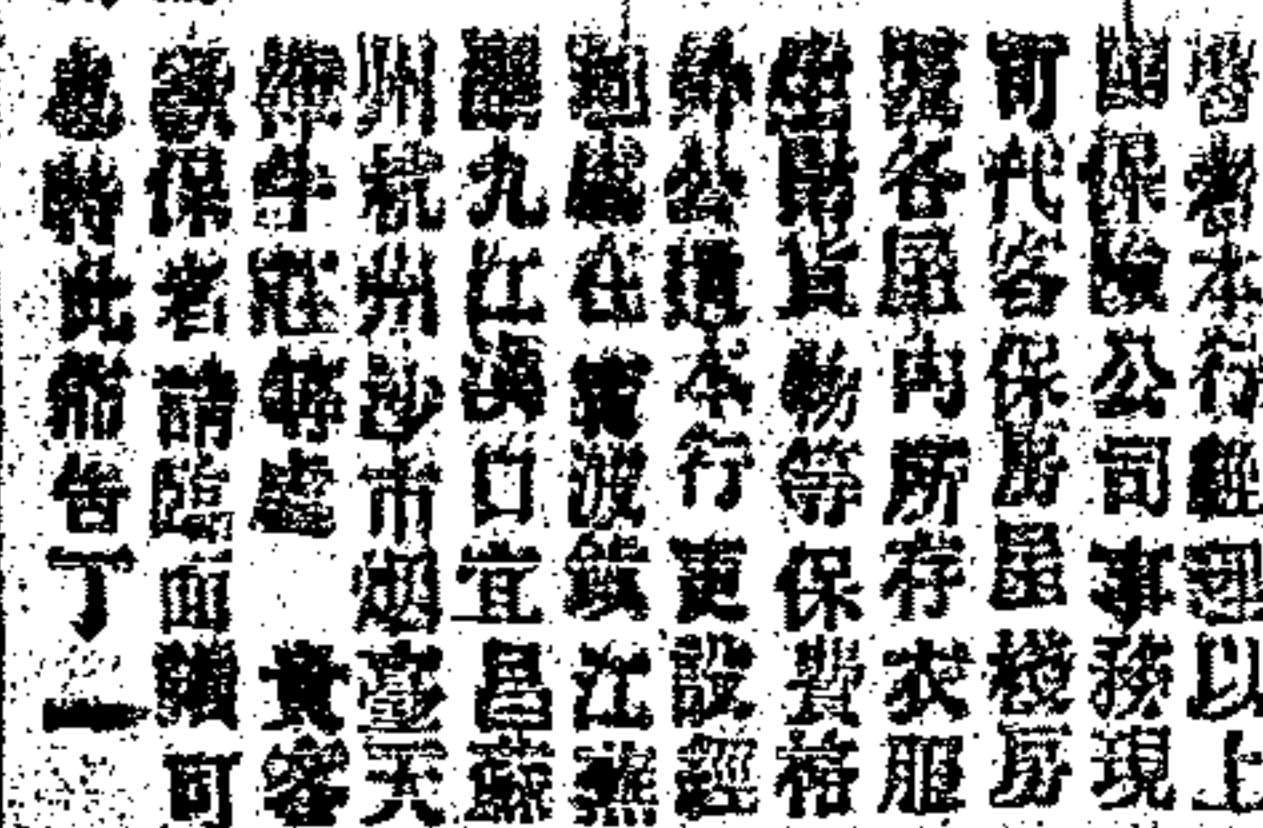 啓者本行經理以上
國保險公司事務現
可代客保房屋棧房
及各屋內所存衣服
財貨物等保費格
外公道本行更設經
理處在寧波鎮江
九江漢口宜昌蘇
州杭州沙市烟臺天
津牛莊等處 貴客
欲保者請臨面議可
也特此佈告 丁 一